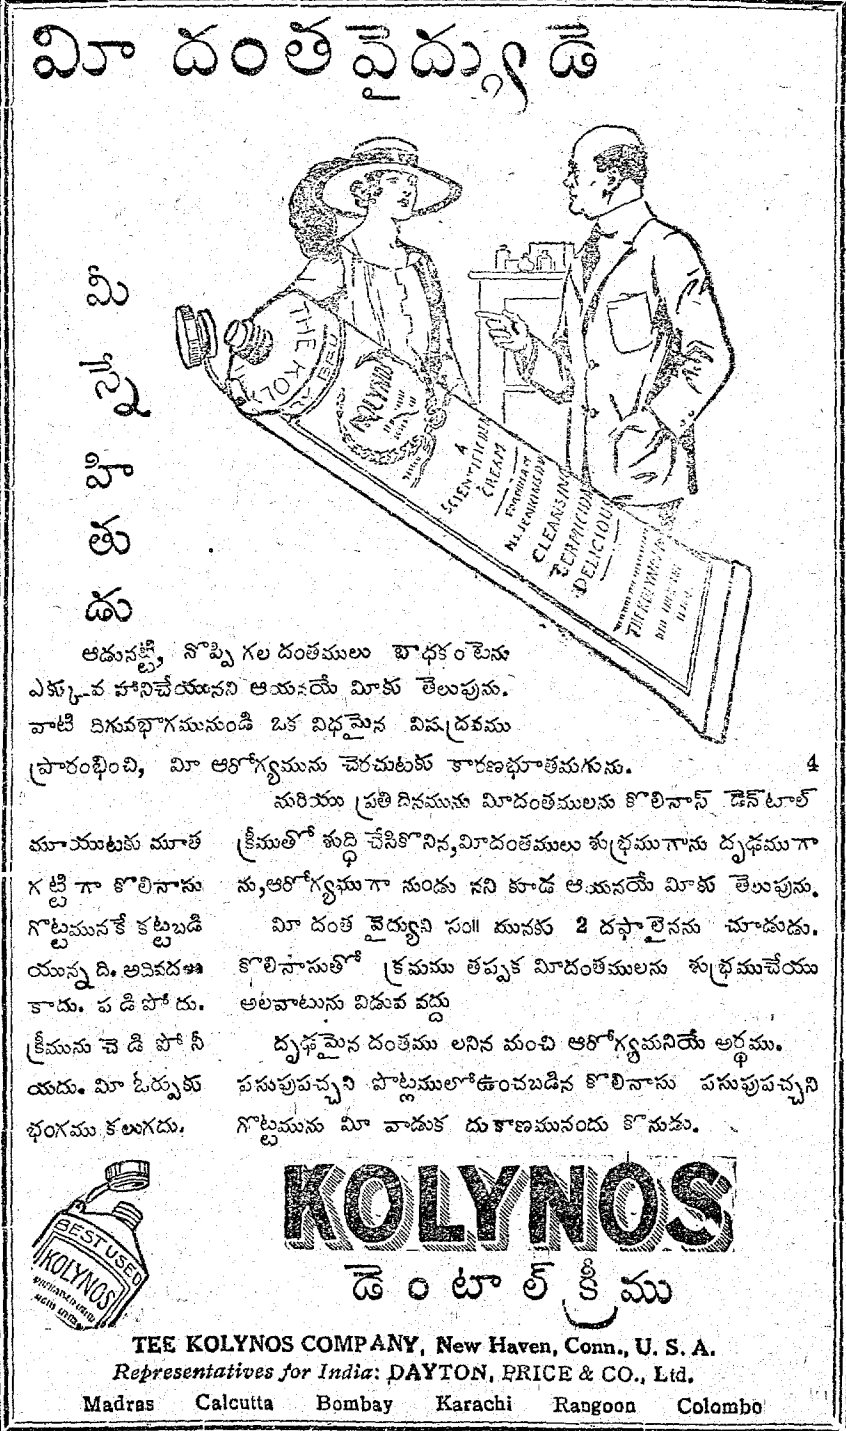 మీ దంతవైద్యుడె
మీ
స్నే
హి
తు
డు
THE KOLYNOS
KOLYNOS
A
SCIENTIFIC DENTAL
CREAM
FORMULA OF
N.S. JENKINS
CLEANSING
GERMICIDAL
DELICIOUS
THE KOLYNOS
ఆడునట్టి, నొప్పి గల దంతములు బాధకంటెను
ఎక్కువ హానిచేయునని ఆయనయే మీకు తెలుపును.
వాటి దిగువభాగమునుండి ఒక విధమైన విషద్రవము
ప్రారంభించి, మీ ఆరోగ్యమును చెరచుటకు కారణభూతమగును.
4
మరియు ప్రతిదినమును మీదంతములను కొలినాస్ డెన్‌టాల్
క్రీముతో శుద్ధి చేసికొనిన, మీదంతములు శుభ్రముగాను దృఢముగా
ను, ఆరోగ్యముగా నుండు నని కూడ ఆయనయే మీకు తెలుపును.
మీ దంత వైద్యుని సం॥ మునకు 2 దఫాలైనను చూడుడు.
కొలినాసుతో క్రమము తప్పక మీదంతములను శుభ్రముచేయు
అలవాటును విడువ వద్దు
దృఢమైన దంతము లనిన మంచి ఆరోగ్యమనియే అర్థము.
పసుపుపచ్చని పొట్లములో ఉంచబడిన కొలినాసు పసుపుపచ్చని
గొట్టమును మీ వాడుక దుకాణమునందు కొనుడు.
మూయుటకు మూత
గట్టిగా కొలినాసు
గొట్టమునకే కట్టబడి
యున్నది. అదివదులు
కాదు. పడిపోదు.
క్రీమును చెడిపోనీ
యదు. మీ ఓర్పుకు
భంగము కలుగదు.
BEST USED
KOLYNOS
KOLYNOS
డెంటాల్ క్రీము
TEE KOLYNOS COMPANY, New Haven, Conn., U. S. A.
Representatives for India: DAYTON, PRICE & CO., Ltd.
Madras Calcutta Bombay Karachi Rangoon Colombo